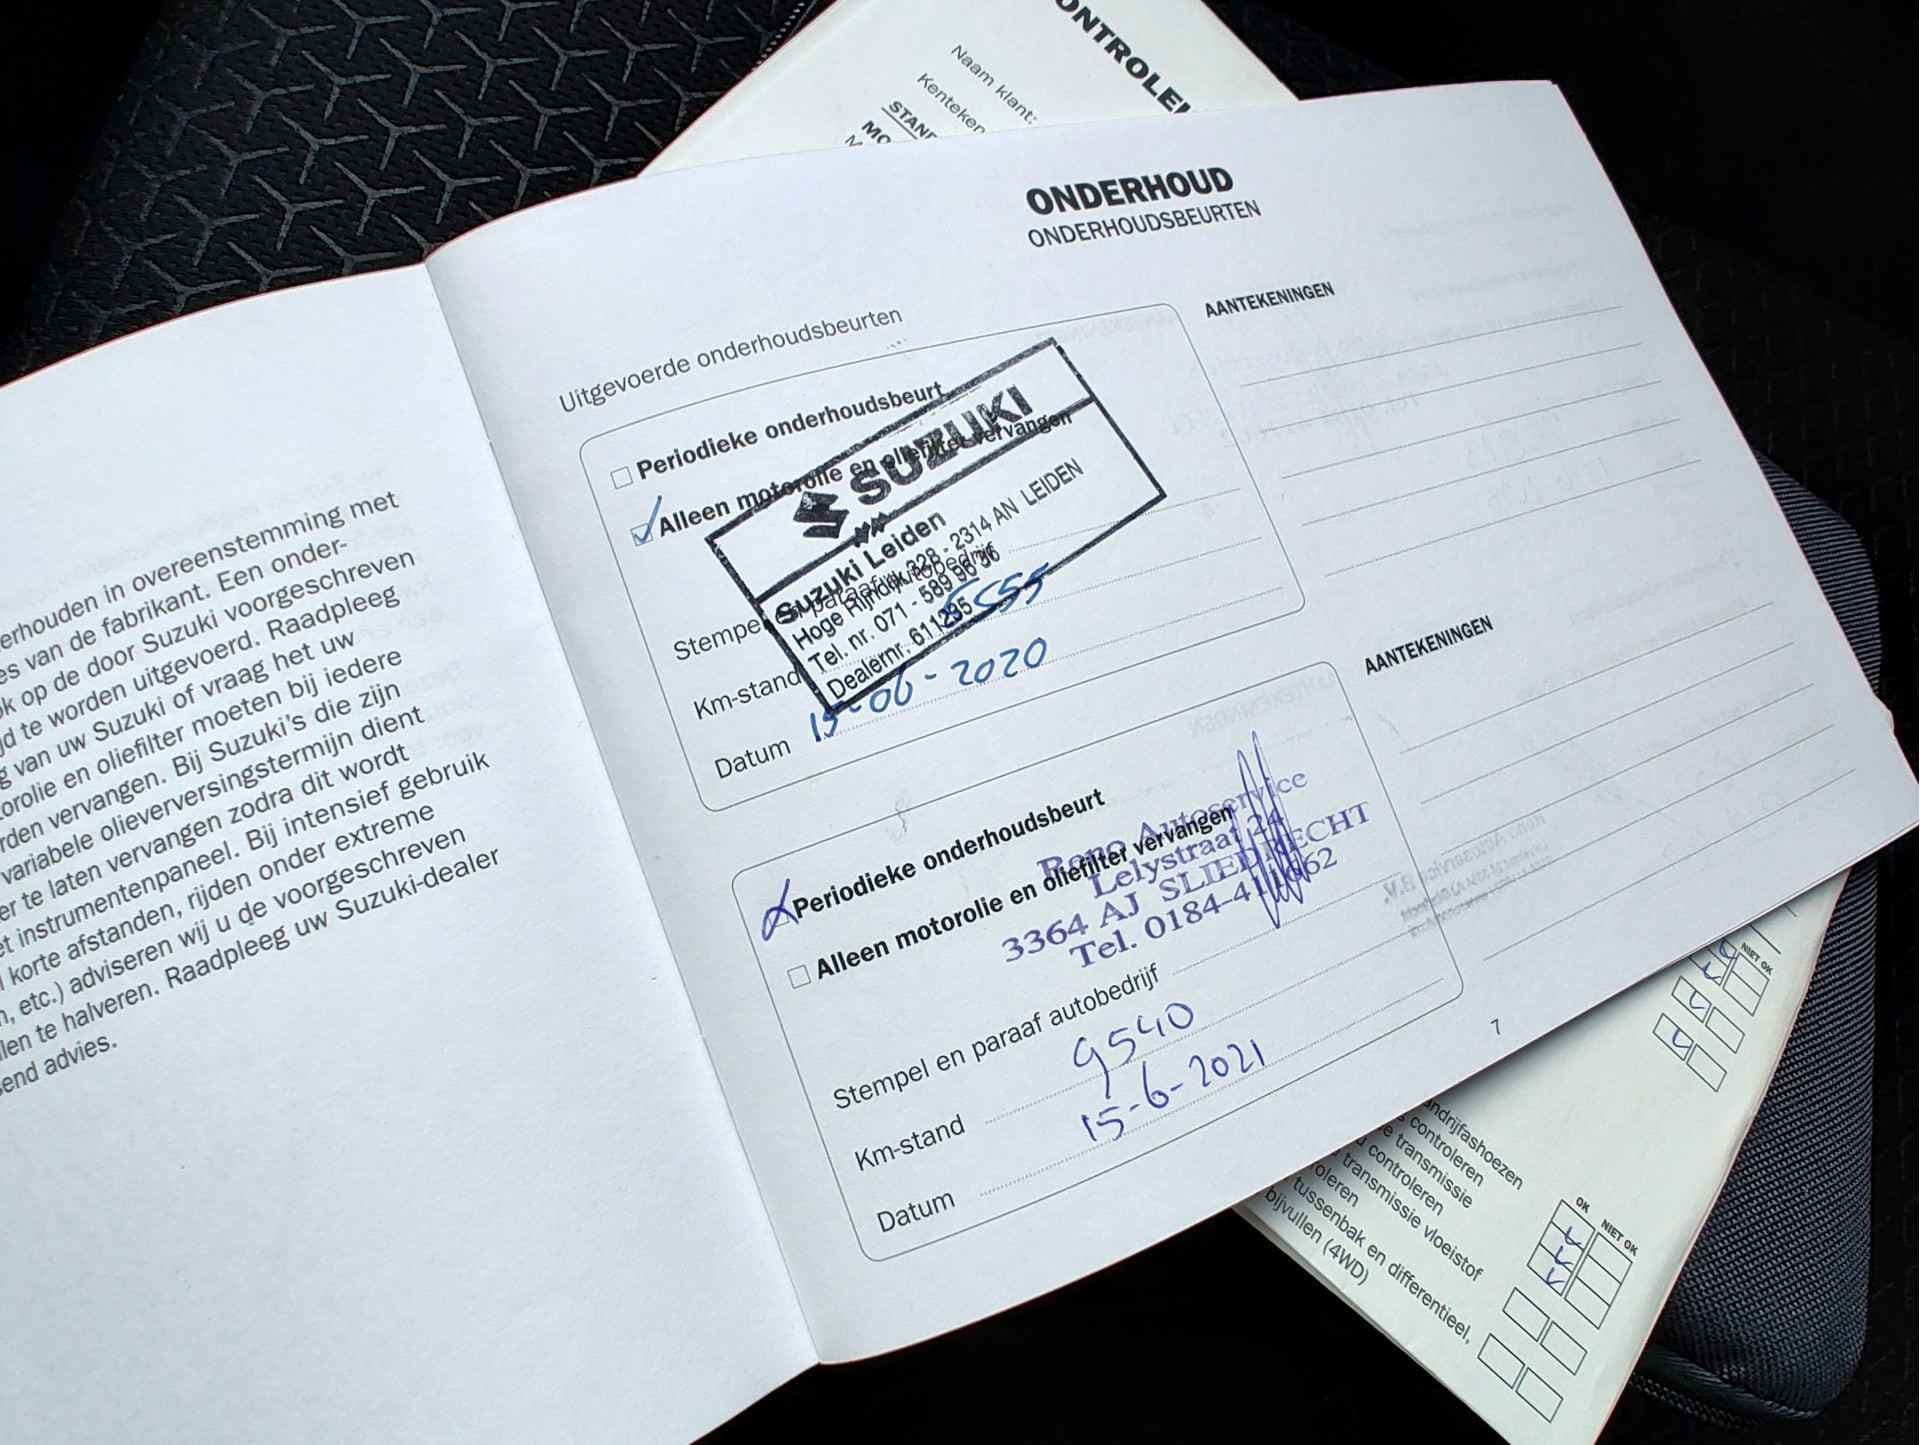 erhouden in overeenstemming met
es van de fabrikant. Een onder-
k op de door Suzuki voorgeschreven
jd te worden uitgevoerd. Raadpleeg
g van uw Suzuki of vraag het uw
orolie en oliefilter moeten bij iedere
rden vervangen. Bij Suzuki's die zijn
variabele olieverversingstermijn dient
er te laten vervangen zodra dit wordt
et instrumentenpaneel. Bij intensief gebruik
korte afstanden, rijden onder extreme
n, etc.) adviseren wij u de voorgeschreven
len te halveren. Raadpleeg uw Suzuki-dealer
send advies.
ONTROLE
Naam klant:
Kenteken
STAN
MO
ONDERHOUD
ONDERHOUDSBEURTEN
Uitgevoerde onderhoudsbeurten
Periodieke onderhoudsbeurt
Alleen motorolie en oliefilter vervangen
SUZUKI
Suzuki Leiden
Hoge Rijndijk 328 - 2314 AN LEIDEN
Tel. nr. 071 - 589 96 36
Dealernr. 611235
Stempel en paraaf autobedrijf
Km-stand 5555
Datum 15-06-2020
AANTEKENINGEN
Periodieke onderhoudsbeurt
Alleen motorolie en oliefilter vervangen
Reno Autoservice
Lelystraat 24
3364 AJ SLIEDRECHT
Tel. 0184-411662
Stempel en paraaf autobedrijf
Km-stand 9540
Datum 15-6-2021
AANTEKENINGEN
7
NIET OK
andrijfashoezen
controleren
e transmissie
controleren
transmissie vloeistof
roleren
tussenbak en differentieel,
bijvullen (4WD)
OK NIET OK